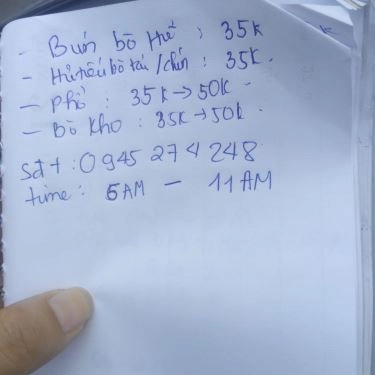 - Bún bò Huế : 35k
- Hủ tiếu bò tái / chín : 35k.
- Phở : 35k → 50k.
- Bò kho : 35k → 50k.
sđt : 0945 274 248
time : 5AM - 11AM